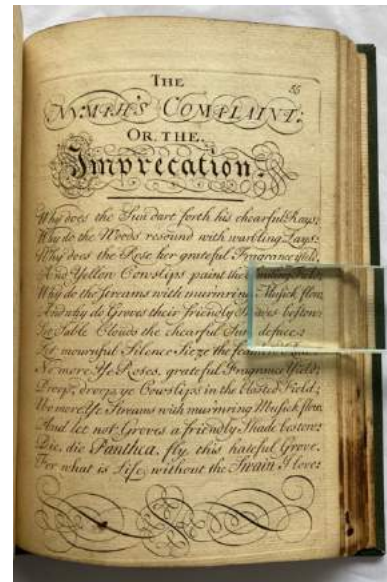 55
THE
NYMPH'S COMPLAINT:
OR, THE
Imprecation.
Why does the Sun dart forth his chearful Rays;
Why do the Woods resound with warbling Lays;
Why does the Rose her grateful Fragrance yield,
And Yellow Cowslips paint the Field;
Why do the Streams with murmring Musick flow,
And why do Groves their friendly bestow:
Let Sable Clouds the chearful Sun deface;
Let mournful Silence Sieze the
No more Ye Roses, grateful Fragrance Yield;
Droop, droop, ye Cowslips in the blasted Field;
No more Ye Streams with murmring Musick flow,
And let not Groves a friendly Shade bestow:
Die, die Panthea, fly, this hateful Grove,
For what is Life, without the Swain I love: